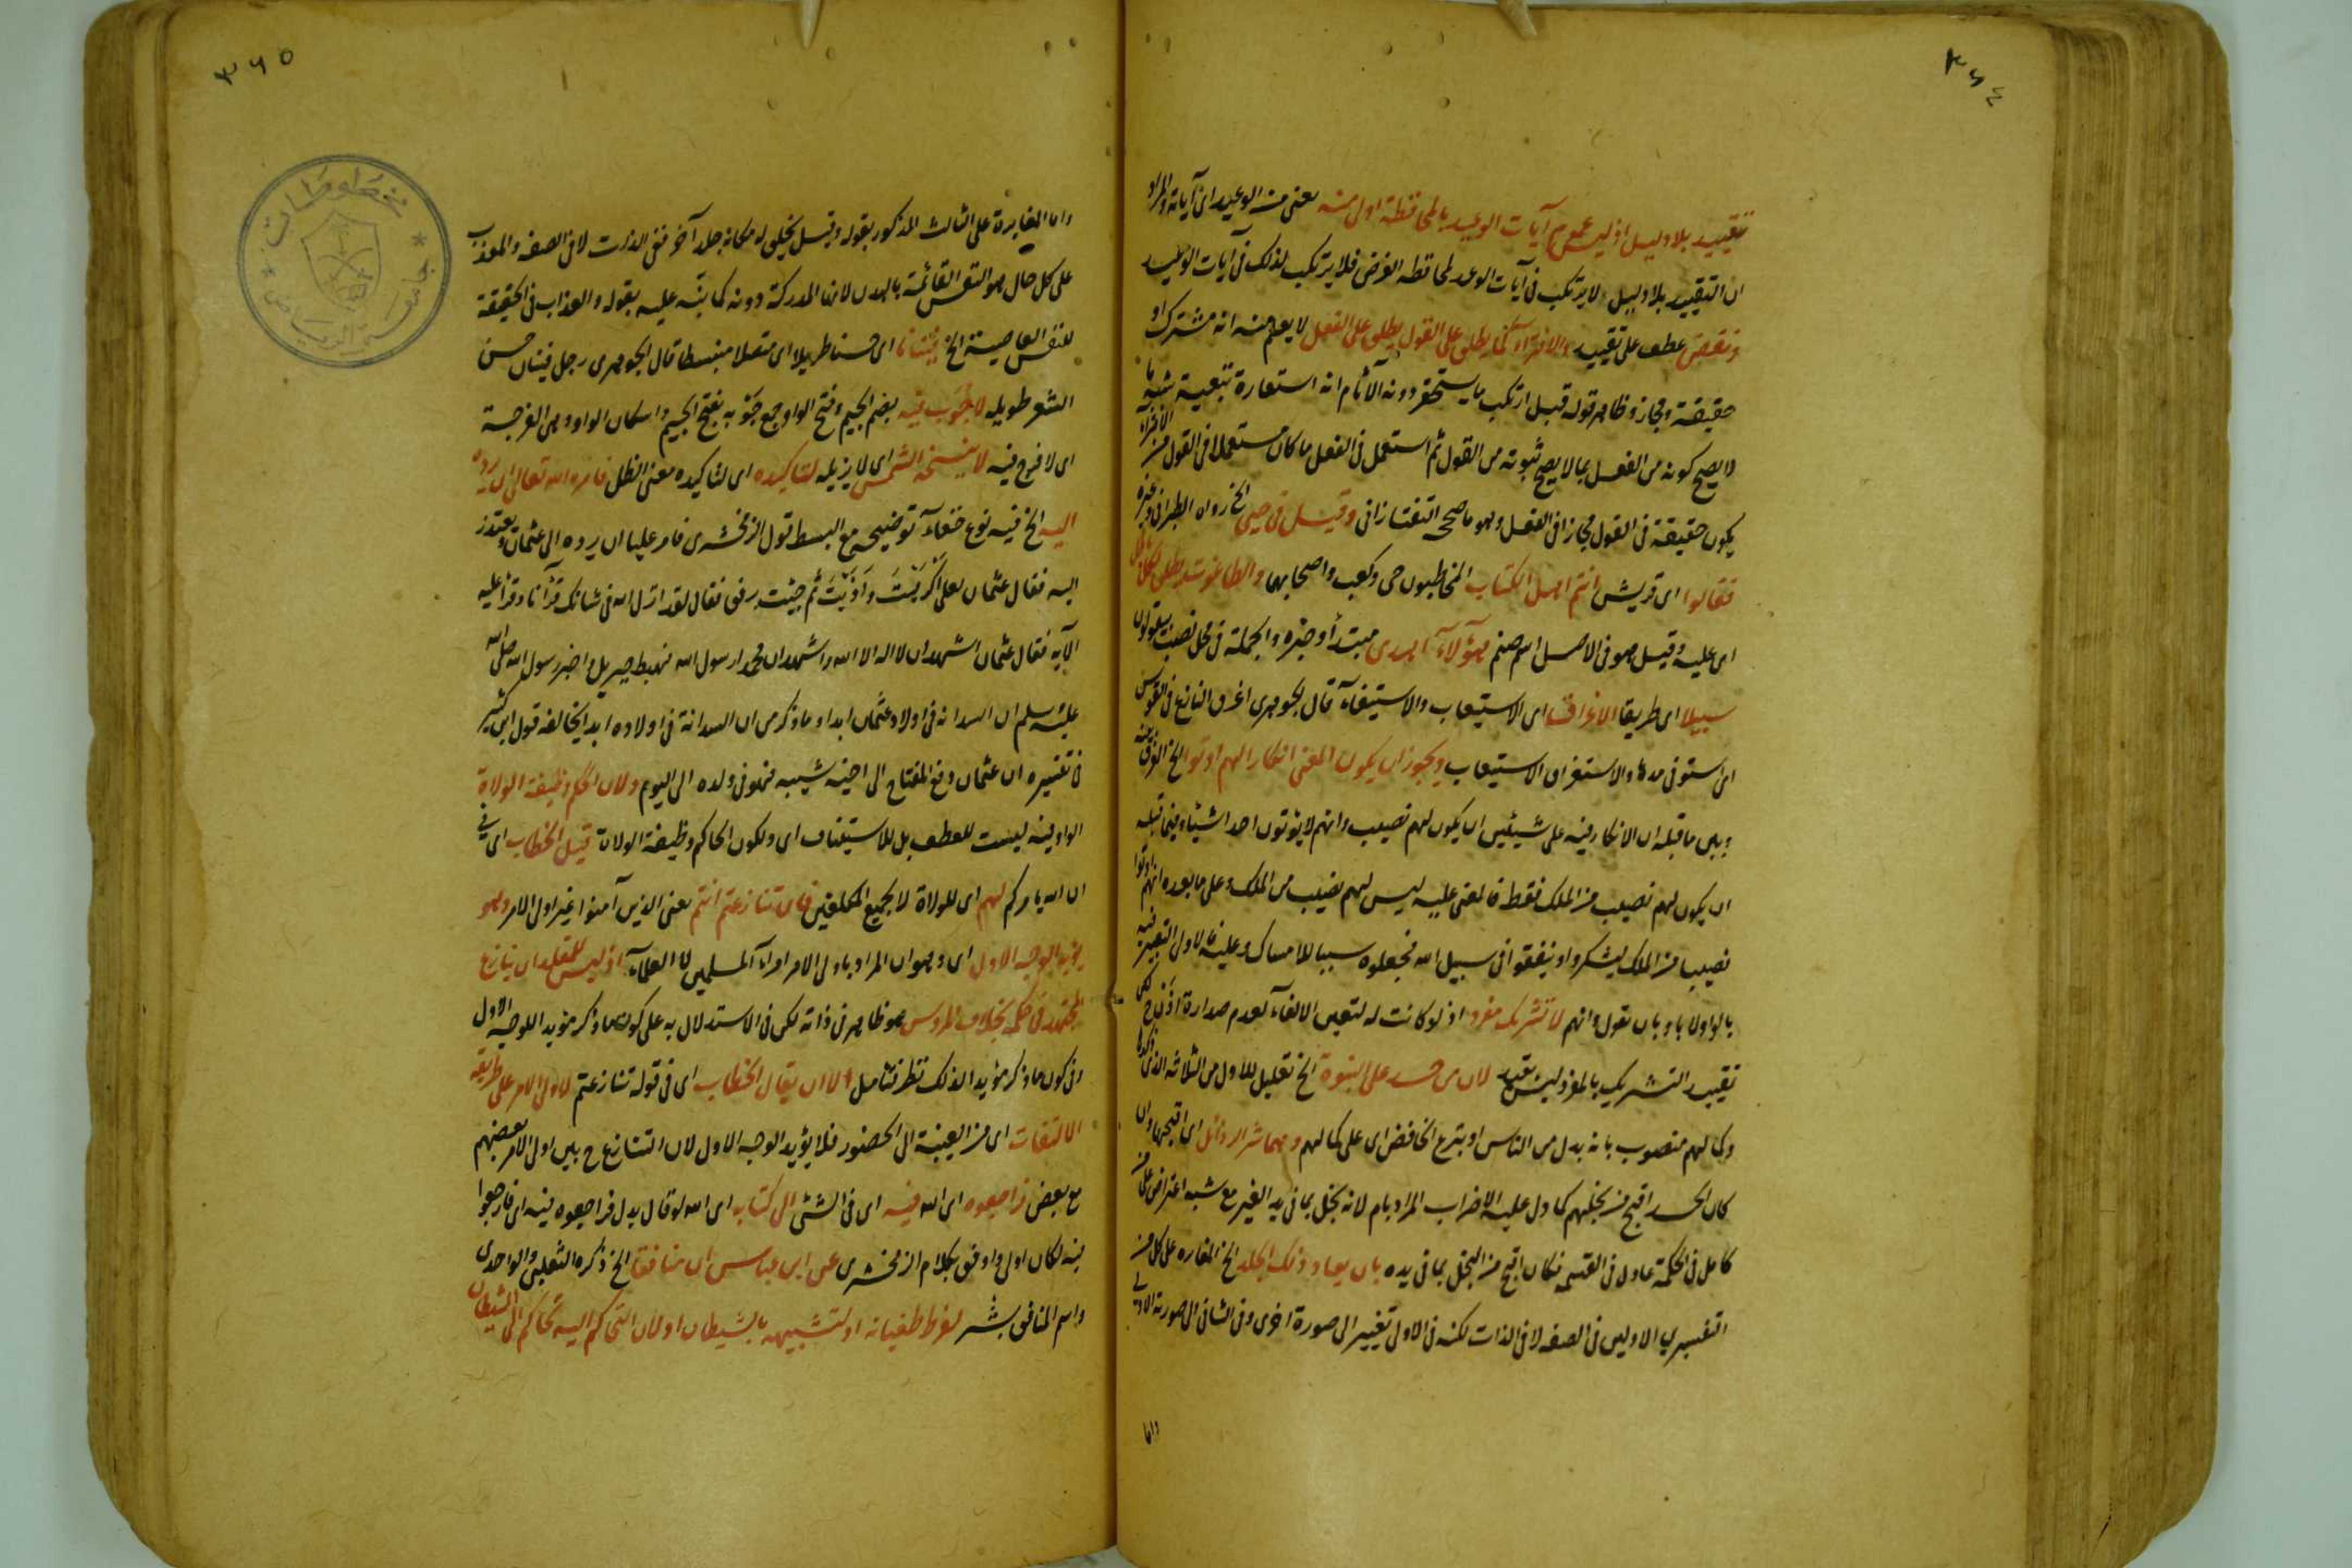 ٣٦٤
تقييد بلا دليل اذ ليس عموم آيات الوعيد بالمحافظة اولى منه يعنى من الوعيد اى آياته والمراد
ان التقييد بلا دليل لا يرتكب فى آيات الوعد لمحافظة الغرض فلا يرتكب لذلك فى آيات الوعيد
ونقض عطف على تقييد والافتراء كما يطلق على القول يطلق على الفعل لا يعلم منه انه مشترك او
حقيقة ومجاز وظاهر قوله قبل ارتكب ما يستحقر دونه الآثام انه استعارة تبعية شبه ما
لا يصح كونه من الفعل بما لا يصح ثبوته من القول ثم استعمل فى الفعل ما كان مستعملا فى القول من الافتراء
يكون حقيقة فى القول مجازا فى الفعل وهو ما صححه التفتازانى وقيل فى حيى الخ رواه الطبرانى وغيره
فقالوا اى قريش انتم اهل الكتاب المخاطبون حى وكعب واصحابهما والطاغوت يطلق لكل
اى عليه وقيل هو فى الاصل اسم صنم هؤلاء اهدى مبتدأ وخبره والجملة فى محل نصب بيقولون
سبيلا اى طريقا الاغراق اى الاستيعاب والاستيفاء قال الجوهرى اغرق النازع فى القوس
اى استوفى مدها والاستغراق الاستيعاب ويجوز ان يكون المعنى انكار انهم اوتوا الخ الفرق بينه
وبين ما قبله ان الانكار فيه على شيئين ان يكون لهم نصيب وانهم لا يؤتون احدا شيئا وفيما قبله
ان يكون لهم نصيب من الملك فقط فالمعنى عليه ليس لهم نصيب من الملك وعلى ما بعده انهم اوتوا
نصيبا من الملك ليشكروا وينفقوا فى سبيل الله فجعلوه سببا للامساك وعليه فالاولى التعبير فيه
بالواو لا باو بان تقول وانهم لا تشريك مفرد اذ لو كانت له لتعين الالغاء لعدم صدارة اذن ح لكن
تقييد التشريك بالمفرد ليس بقيد لان من حسد على النبوة الخ تعليل للاول من الثلاثة الذى ذكرها
وكمالهم منصوب بانه بدل من الناس او بنزع الخافض اى على كمالهم وهما شر الرذائل اى اقبحها وان
كان الحسد اقبح من بخلهم كما دل عليه الاضراب المراد بام لانه بخل بما فى يد الغير مع شبه اعتراض على من
كامل فى الحكمة عادل فى القسمة فكان اقبح من البخل بما فى يده بان يعاد ذلك الجلد الخ المغايرة على كل من
التفسيرين الاولين فى الصفة لا فى الذات لكنه فى الاول تغيير الى صورة اخرى وفى الثانى الى صورته الاولى
واما
٣٦٥
واما المغايرة على الثالث المذكور بقوله وقيل يخلق له مكانه جلد آخر ففى الذات لا فى الصفة والمعذب
على كل حال هو النفس القائمة بالبدن لانها المدركة دونه كما نبه عليه بقوله والعذاب فى الحقيقة
للنفس العاصية الخ فينانا اى حسنا طويلا اى متصلا منبسطا قال الجوهرى رجل فينان حسن
الشعر طويله لا جوب فيه بضم الجيم وفتح الواو جمع جوبه بفتح الجيم واسكان الواو وهى الفرجة
اى لا فرج فيه لا تنسخه الشمس اى لا يزيله لتاكيده اى لتاكيده معنى الظل فامره الله تعالى ان يرده
اليه الخ فيه نوع خفاء توضيحه مع البسط قول الزمخشرى فامر عليا ان يرده الى عثمان ويعتذر
اليه فقال عثمان لعلى أكرهت وآذيت ثم جئت برفق فقال لقد انزل الله فى شانك قرآنا وقرأ عليه
الآية فقال عثمان اشهد ان لا اله الا الله واشهد ان محمدا رسول الله فهبط جبريل واخبر رسول الله صلى الله
عليه وسلم ان السدانة فى اولاد عثمان ابدا وما ذكر من ان السدانة فى اولاده ابدا يخالفه قول ابن كثير
فى تفسيره ان عثمان دفع المفتاح الى اخيه شيبه فهو فى ولده الى اليوم ولان الحكم وظيفة الولاة
الواو فيه ليست للعطف بل للاستيناف اى ولكون الحاكم وظيفة الولاة قيل الخطاب اى فى
ان الله يامركم لهم اى للولاة لا لجميع المكلفين فان تنازعتم انتم يعنى الذين آمنوا غير اولى الامر وهو
يؤيد الوجه الاول اى وهو ان المراد باولى الامر امراء المسلمين لا العلماء اذ ليس للمقلد ان ينازع
المجتهد فى حكمه بخلاف المرؤس هو ظاهر فى ذاته لكن فى الاستدلال به على كونه ما ذكر مؤيدا للوجه الاول
وفى كون ما ذكر مؤيدا لذلك نظر فتأمل الا ان يقال الخطاب اى فى قوله تنازعتم لاولى الامر على طريقة
الالتفات اى من الغيبة الى الحضور فلا يؤيد الوجه الاول لان التنازع ح بين اولى الامر بعضهم
مع بعض فراجعوه اى الله فيه اى فى الشئ الى كتابه اى الله لو قال بدل فراجعوه فيه اى فارجعوا
فيه لكان اولى واوفق بكلام الزمخشرى عن ابن عباس ان منافقا الخ ذكره الثعلبى والواحدى
واسم المنافق بشر لفرط طغيانه او لتشبيهه بالشيطان او لان التحاكم اليه تحاكم الى الشيطان
مخطوطات
جامعة الرياض